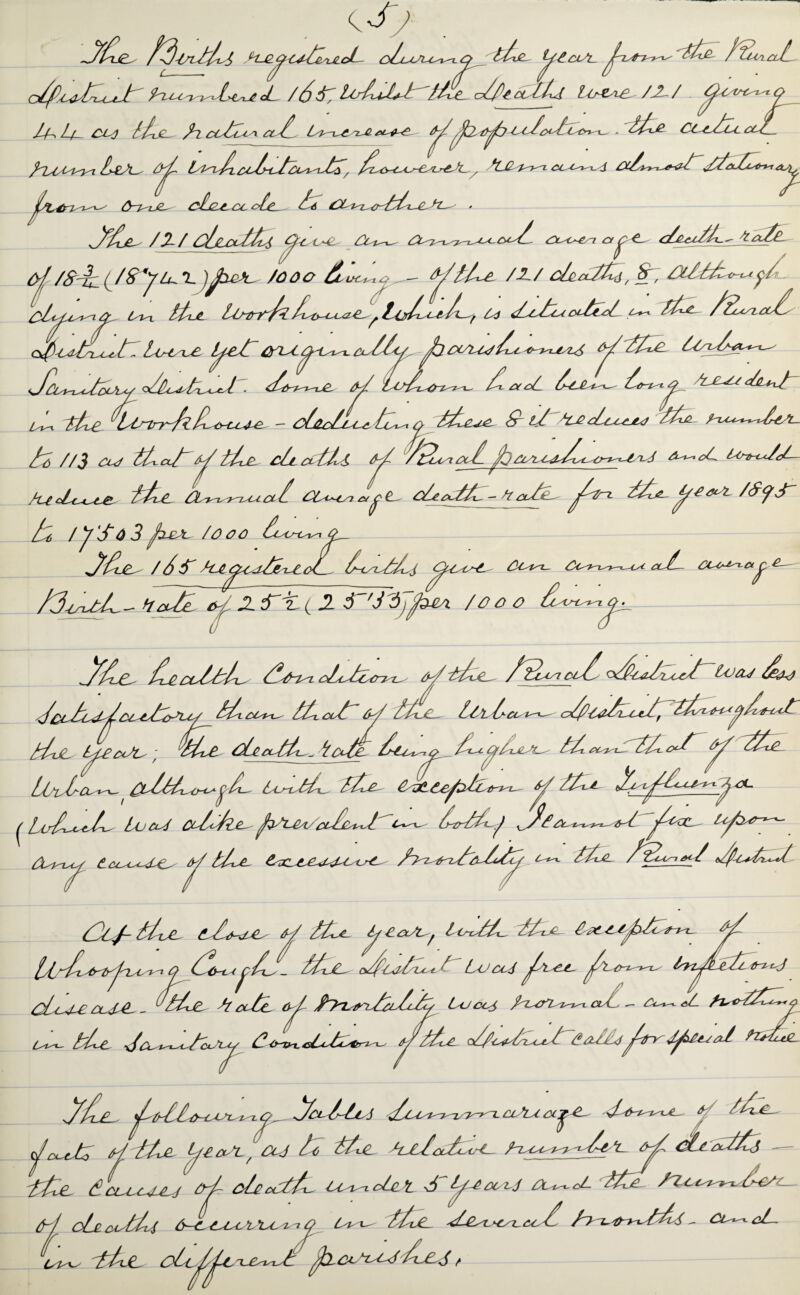 (5)
The Births registered during the year from the Rural
District numbered 165, Whilst the Deaths were 121 giving
44 as the natural increase of population. the actual
number of inhabitants, however, remains almost stationary
from one decade to another.
The 121 deaths give an annual average death-rate
of 18¾ (18'742) per 1000 living - of the 121 deaths, 8, Although
dying in the Workhouse, Which, is situated in the Rural
District. Were yet originally parishioners of the Urban
Sanitary District. Some of whom had been long resident
in the Workhouse - deducting these 8 it reduces the number
to 113 as that of the deaths of Rural parishioners and would
reduce the annual average death-rate for the year 1895
to 17'503 per 1000 living
The 165 registered births give an annual average
Birth-rate of 25½ (25'55) per 1000 living.
The health Condition of the Rural District was less
satisfactory than that of the Urban District, throughout
the year; the death-rate being higher than that of the
Urban, although with the exception of the Influenza
(Which was alike prevalent in both) I cannot fix upon
any cause of the excessive mortality in the Rural District
At the close of the year, with the exception of
Whooping Cough - the District was free from infections
disease - the rate of mortality was normal - and nothing
in the Sanitary Condition of the District calls for special notice
The following Tables summariage some of the
facts of the year, as to the relative number of deaths -
the Causes of death under 5 years and the number
of deaths occurring in the several months - and
in the different parishes,